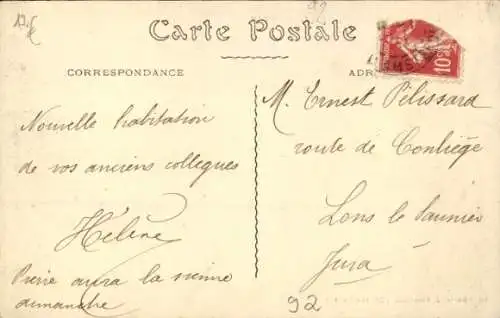 12,€
92
Carte Postale
CORRESPONDANCE
ADR
10
Nouvelle habitation
de vos anciens collegues
Hélène
Pierre aura la sienne
dimanche
M. Ernest Pélissard
route de Conliège
Lons le Saunier
Jura
92